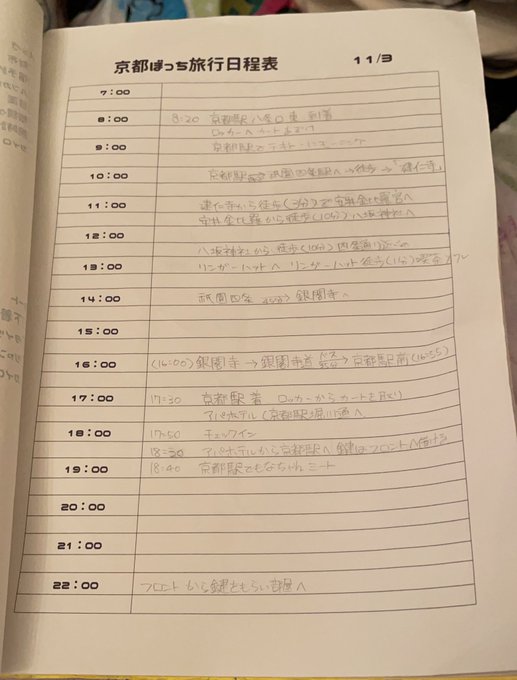 京都ぼっち旅行日程表 11/3
7:00
8:00 8:20 京都駅八条口東 到着
ロッカーへカートあずけ
9:00 京都駅で
10:00 京都駅 祇園四条駅へ→徒歩→「建仁寺」
11:00 建仁寺から徒歩(3分)で安井金比羅宮へ
安井金比羅から徒歩(10分)八坂神社へ
12:00
八坂神社から徒歩(10分)四条通り
13:00 リンガーハットへ リンガーハット徒歩(1分)喫茶
14:00 祇園四条 銀閣寺へ
15:00
16:00 (16:00)銀閣寺→銀閣寺道 バス →京都駅前(16:55)
17:00 17:30 京都駅着 ロッカーからカートを取り
アパホテル(京都駅堀川通へ
18:00 17:50 チェックイン
18:30 アパホテルから京都駅へ 鍵はフロントへ預ける
19:00 18:40 京都駅でもなちゃんミート
20:00
21:00
22:00 フロントから鍵をもらい部屋へ